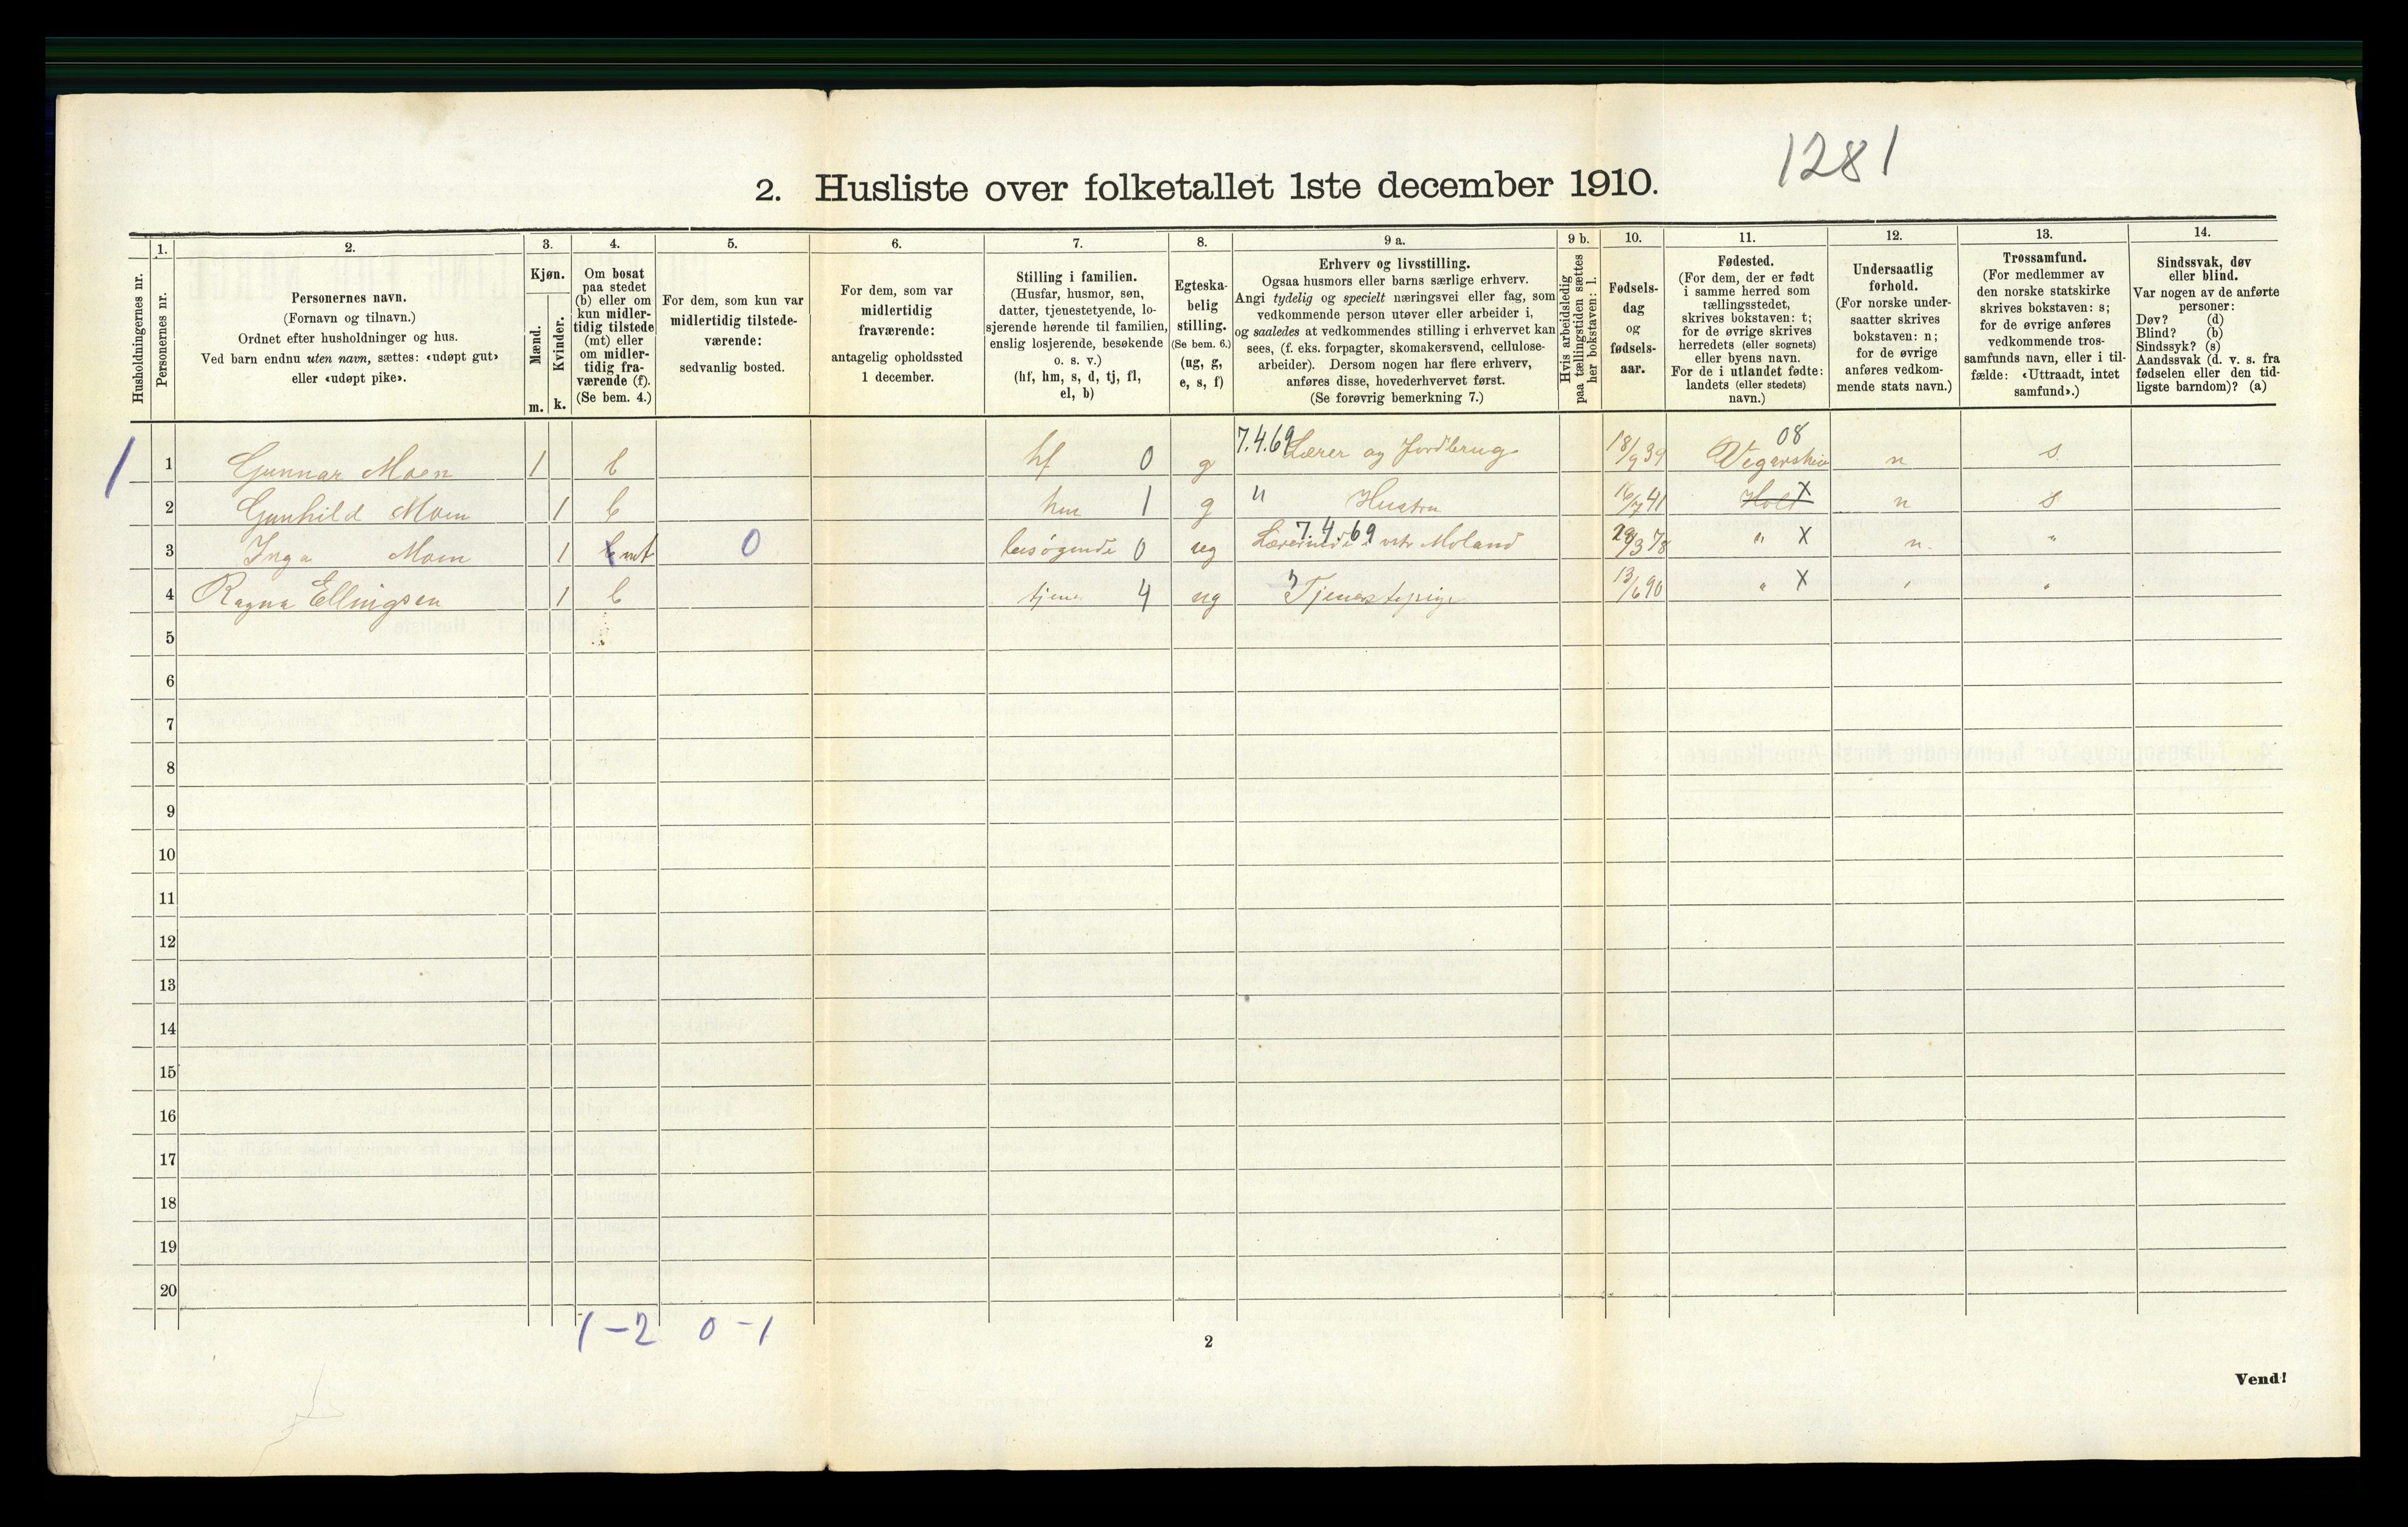 1281
2. Husliste over folketallet 1ste december 1910.
Husholdningernes nr.
1.
Personernes nr.
2.
Personernes navn.
(Fornavn og tilnavn.)
Ordnet efter husholdninger og hus.
Ved barn endnu uten navn, sættes: «udøpt gut»
eller «udøpt pike».
3.
Kjøn.
Mænd.
Kvinder.
m. k.
4.
Om bosat
paa stedet
(b) eller om
kun midler-
tidig tilstede
(mt) eller
om midler-
tidig fra-
værende (f).
(Se bem. 4.)
5.
For dem, som kun var
midlertidig tilstede-
værende:
sedvanlig bosted.
6.
For dem, som var
midlertidig
fraværende:
antagelig opholdssted
1 december.
7.
Stilling i familien.
(Husfar, husmor, søn,
datter, tjenestetyende, lo-
sjerende hørende til familien,
enslig losjerende, besøkende
o. s. v.)
(hf, hm, s, d, tj, fl,
el, b)
8.
Egteska-
belig
stilling.
(Se bem. 6.)
(ug, g,
e, s, f)
9 a.
Erhverv og livsstilling.
Ogsaa husmors eller barns særlige erhverv.
Angi tydelig og specielt næringsvei eller fag, som
vedkommende person utøver eller arbeider i,
og saaledes at vedkommendes stilling i erhvervet kan
sees, (f. eks. forpagter, skomakersvend, cellulose-
arbeider). Dersom nogen har flere erhverv,
anføres disse, hovederhvervet først.
(Se forøvrig bemerkning 7.)
9 b.
Hvis arbeidsledig
paa tællingstiden sættes
her bokstaven: l.
10.
Fødsels-
dag
og
fødsels-
aar.
11.
Fødested.
(For dem, der er født
i samme herred som
tællingsstedet,
skrives bokstaven: t;
for de øvrige skrives
herredets (eller sognets)
eller byens navn.
For de i utlandet fødte:
landets (eller stedets)
navn.)
12.
Undersaatlig
forhold.
(For norske under-
saatter skrives
bokstaven: n;
for de øvrige
anføres vedkom-
mende stats navn.)
13.
Trossamfund.
(For medlemmer av
den norske statskirke
skrives bokstaven: s;
for de øvrige anføres
vedkommende tros-
samfunds navn, eller i til-
fælde: «Uttraadt, intet
samfund».)
14.
Sindssvak, døv
eller blind.
Var nogen av de anførte
personer:
Døv? (d)
Blind? (b)
Sindssyk? (s)
Aandssvak (d. v. s. fra
fødselen eller den tid-
ligste barndom)? (a)
1 1 Gunnar Moen 1 b hf 0 g 7.4.69 Lærer og Jordbrug 18/9 39 08 Vegarshei n s
2 Gunhild Moen 1 b hm 1 g " Hustru 16/7 41 Holt X n s
3 Inga Moen 1 b mt 0 besøgende 0 ug 7.4.69 Lærerinde Moland 29/3 78 " X n "
4 Ragna Ellingsen 1 b tjene 4 ug Tjenestepige 13/6 90 " X " "
5
6
7
8
9
10
11
12
13
14
15
16
17
18
19
20
1 – 2 0 – 1
2
Vend!